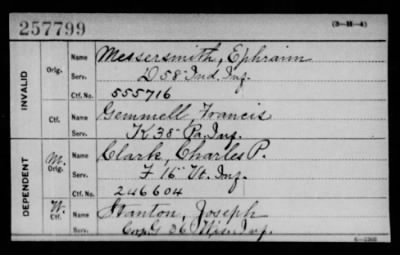 257799 (3-H-4)
INVALID
Orig. Name Messersmith, Ephraim
Serv. D 58 Ind. Inf.
Ctf. No. 555716
Ctf. Name Gemmell, Francis
Serv. K 38 Pa. Inf.
DEPENDENT
M. Orig. Name Clark, Charles P.
Serv. F 16 Vt. Inf.
Ctf. No. 246604
W. Ctf. Name Stanton, Joseph
Serv. Corp. G 36 Wis. Inf.